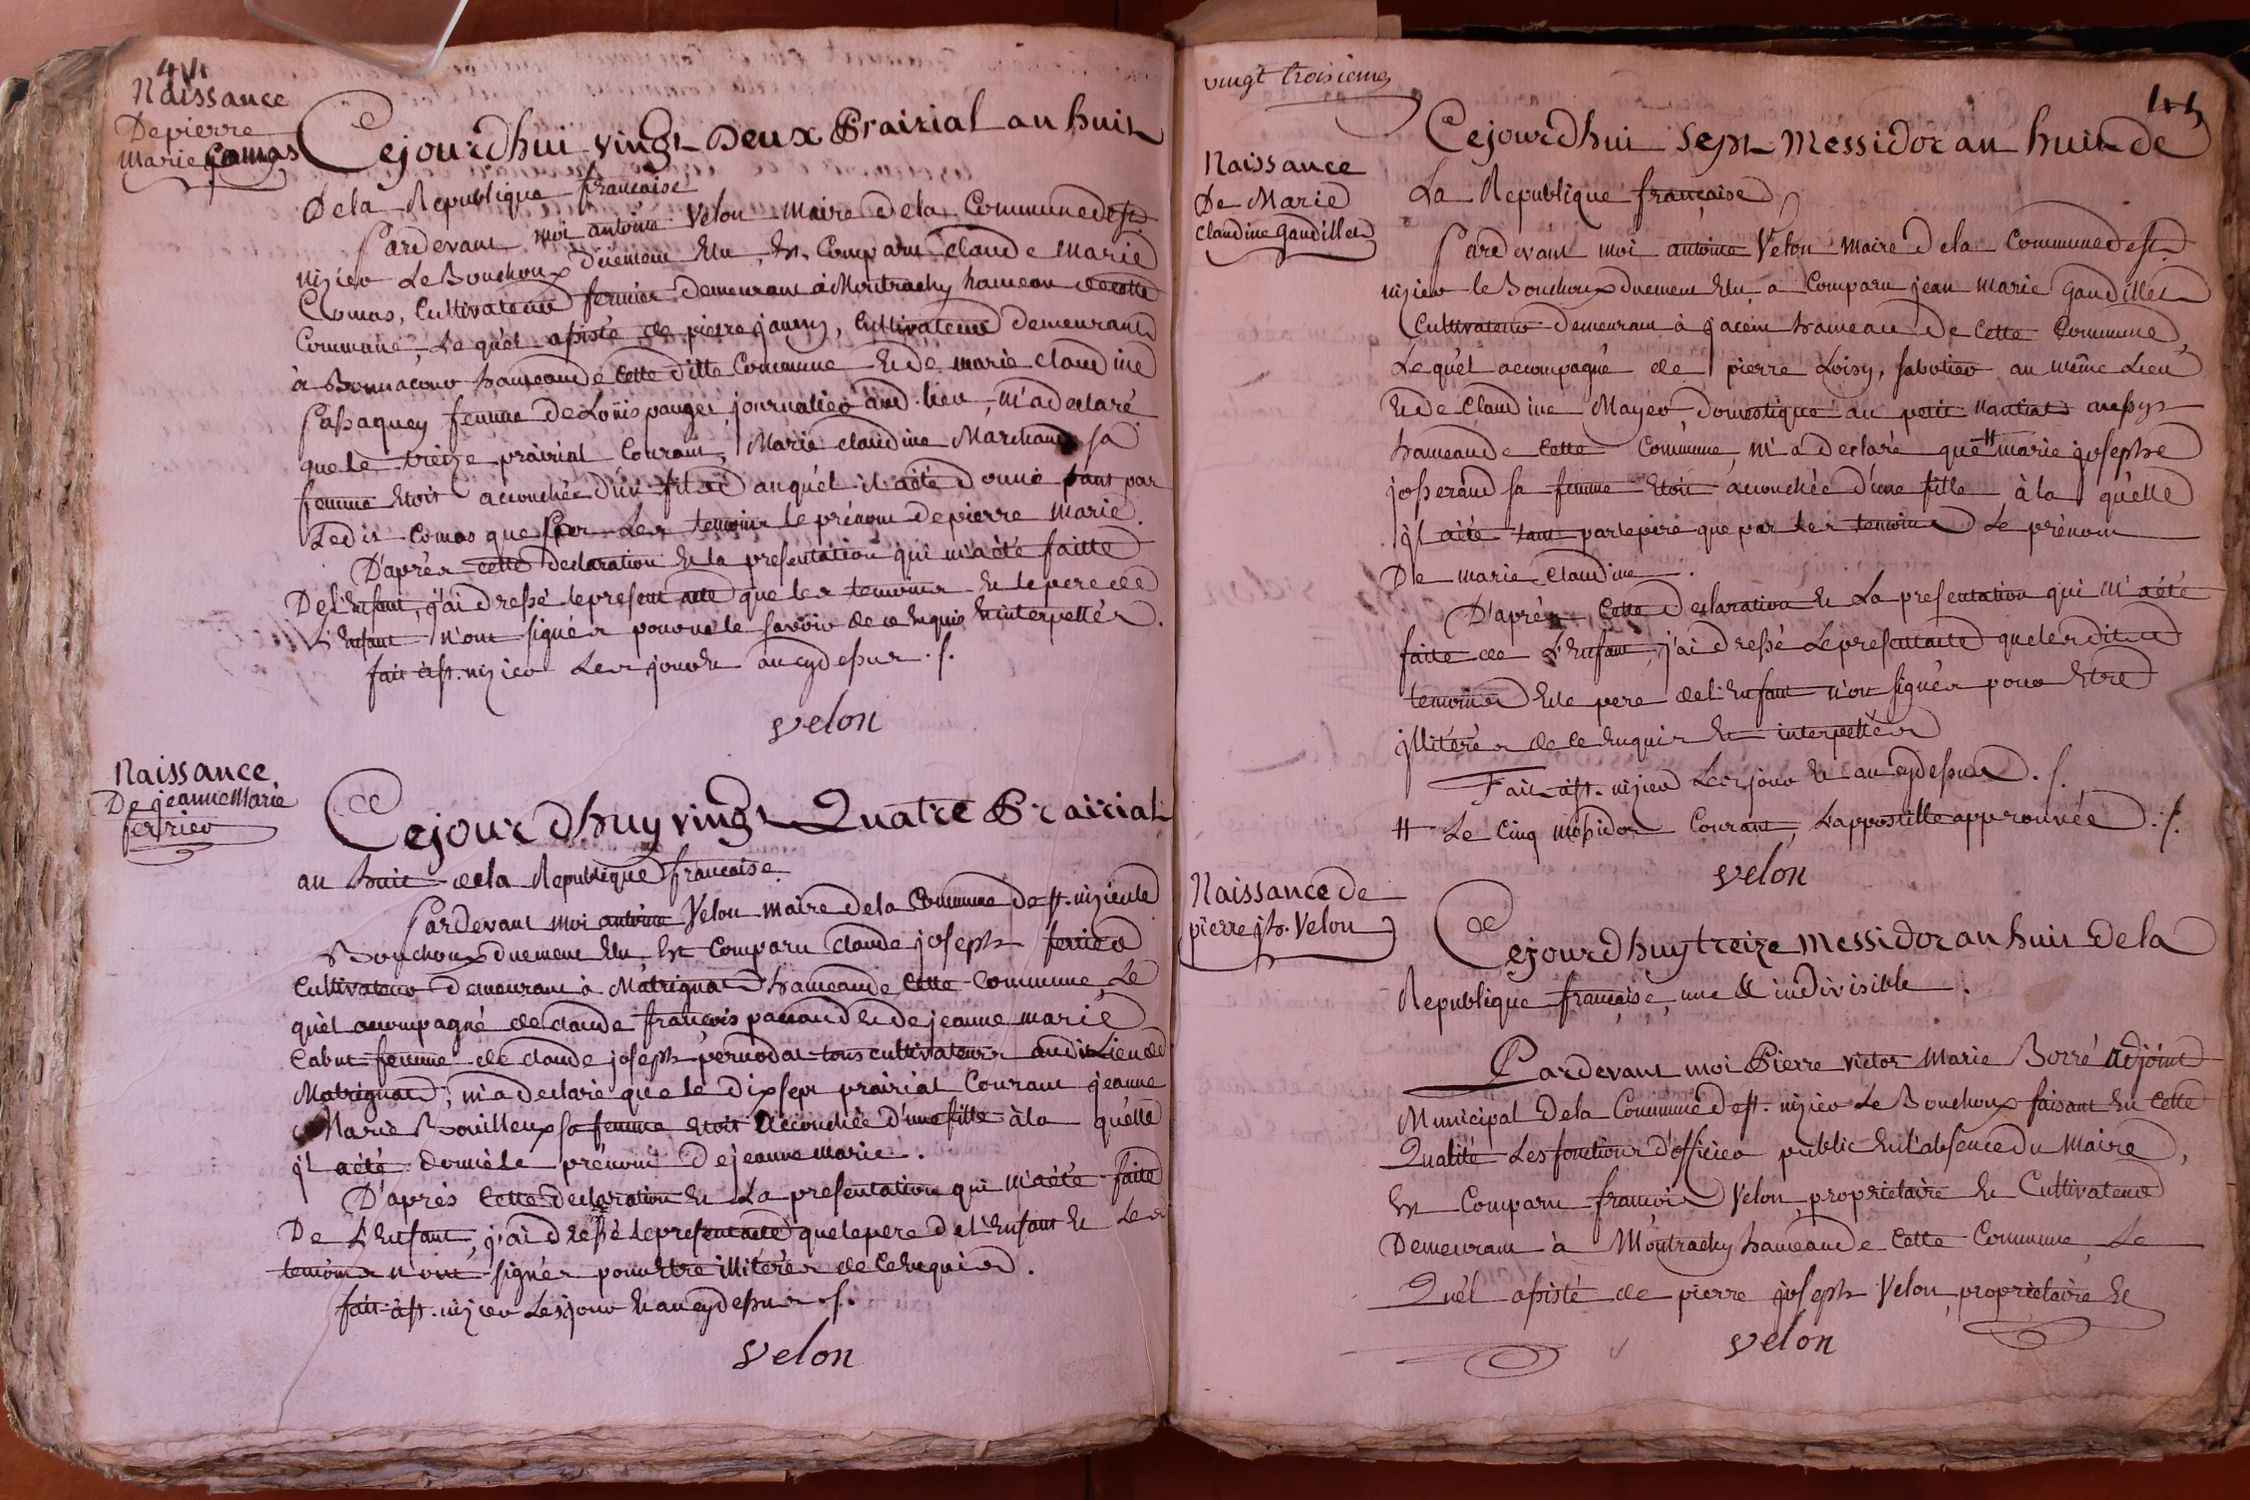 44
Naissance
De pierre
Marie Comas
Cejourdhui vingt Deux Prairial an huit
De la Republique francaise
Pardevant moi antoine Velon Maire de la Commune de st.
nizier Le Bouchoux duement Elu, Est Comparu Claude Marie
Comas, Cultivateur fermier demeurant à Montrachy hameau de cette
Commune, Le quel assisté de pierre jauny, Cultivateur demeurant
à Bonnacour hameau de Cette ditte Commune Et de marie claudine
Passaquey femme De Loüis panget journalier aud. lieu, m'a declaré
que le treize prairial Courant, Marie claudine Marchand sa
femme Etoit accouchée d'un fils auquel il a été donné tant par
Ledit Comas que Par Les temoins le prénom de pierre Marie.
D'après cette declaration Et la presentation qui m'a été faitte
De l'Enfant, j'ai dressé le present acte que les temoins Et le pere de
L'Enfant n'ont signés pour ne le savoir de ce Enquis Et interpellés.
fait à st. nizier Les jour Et an cydessus ./.
Velon
Naissance
De jeanne Marie
ferrier
Cejourdhuy vingt Quatre Prairial
an huit de la Republique francaise.
Pardevant moi antoine Velon maire de la Commune de st. nizier le
Bouchoux duement Elu, Est Comparu claude joseph ferrier
Cultivateur Demeurant à Matrignat hameau de Cette Commune, Le
quel accompagné de claude françois pacaud Et de jeanne marie
Cabut femme de claude joseph pernodat tous cultivateurs audit Lieu de
Matrignat, m'a declaré que le dixsept prairial Courant jeanne
Marie Bouilloux sa femme Etoit accouchée d'une fille à la quelle
il a été donné le prénom de jeanne marie.
D'après Cette declaration Et La presentation qui m'a été faite
De L'Enfant, j'ai dressé le present acte que le pere de l'Enfant Et Les
temoins n'ont signés pour Etre illitérés de Ce Enquis.
fait à st. nizier Les jour Et an cydessus ./.
Velon
vingt troisieme
45
Naissance
De Marie
Claudine Gaudillet
Cejourdhui Sept Messidor an huit de
La Republique française
Pardevant moi antoine Velon Maire de la Commune de st.
nizier le Bouchoux duement Elu, a Comparu jean Marie Gaudillet
Cultivateur Demeurant à jacein hameau De Cette Commune,
Le quel accompagné de pierre Loisy, sabotier au même Lieu
Et de Claudine Mayer domestique au petit Nantiat aussy
hameau de Cette Commune, m'a declaré que # marie josephe
josserand sa femme Etoit accouchée d'une fille à la quelle
il a été tant par le pere que par les temoins Le prénom
De marie Claudine.
D'après Cette Declaration Et La presentation qui m'a été
faite de L'Enfant, j'ai dressé Le present acte que lesdits
temoins Et le pere de l'Enfant n'ont signés pour Etre
jllitérés de Ce Enquis Et interpellés
Fait à st. nizier Les jour Et an cydessus ./.
# Le Cinq messidor Courant, L'appostille approuvée ./.
Velon
Naissance de
pierre jh. Velon
Cejourdhuy treize Messidor an huit De la
Republique française, une & indivisible.
Pardevant moi Pierre victor Marie Borré adjoint
Municipal De la Commune de st. nizier Le Bouchoux faisant En Cette
Qualité Les fonctions d'officier public En l'absence du Maire,
Est Comparu françois Velon, proprietaire Et Cultivateur
Demeurant à Montrachy hameau de Cette Commune, Le
Quel assisté de pierre joseph Velon, proprietaire Et
Velon